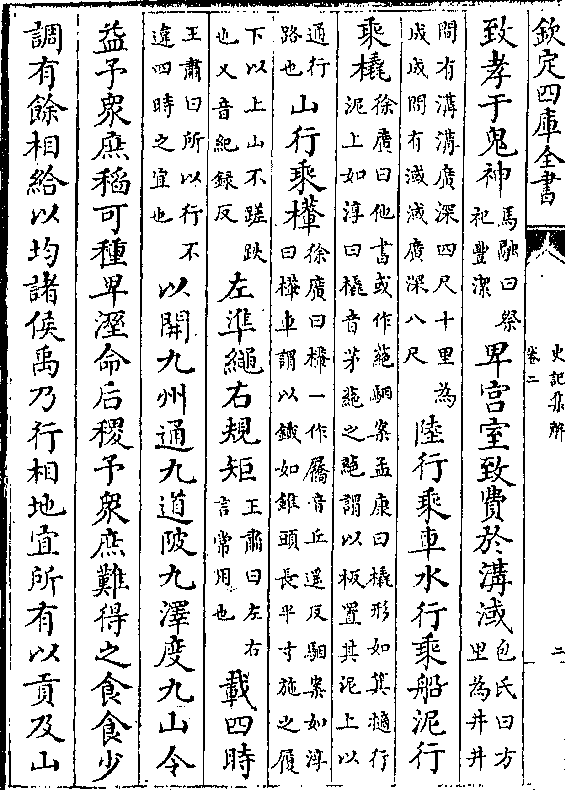 欽定四庫全書
史記集解
卷二
二
致孝于鬼神馬融曰祭祀豐潔卑宮室致費於溝淢包氏曰方里為井井
間有溝溝廣深四尺十里為成成間有淢淢廣深八尺陸行乗車水行乗船泥行
乗橇徐廣曰他書或作蕝駰案孟康曰橇形如箕擿行泥上如淳曰橇音茅蕝之蕝謂以板置其泥上以
通行路也山行乗檋徐廣曰檋一作屩音丘遥反駰案如淳曰檋車謂以鐵如錐頭長半寸施之履
下以上山不蹉跌也又音紀録反左準繩右規矩王肅曰左右言常用也載四時
王肅曰所以行不違四時之宜也以開九州通九道陂九澤度九山令
益予衆庶稻可種卑溼命后稷予衆庶難得之食食少
調有餘相給以均諸侯禹乃行相地宜所有以貢及山